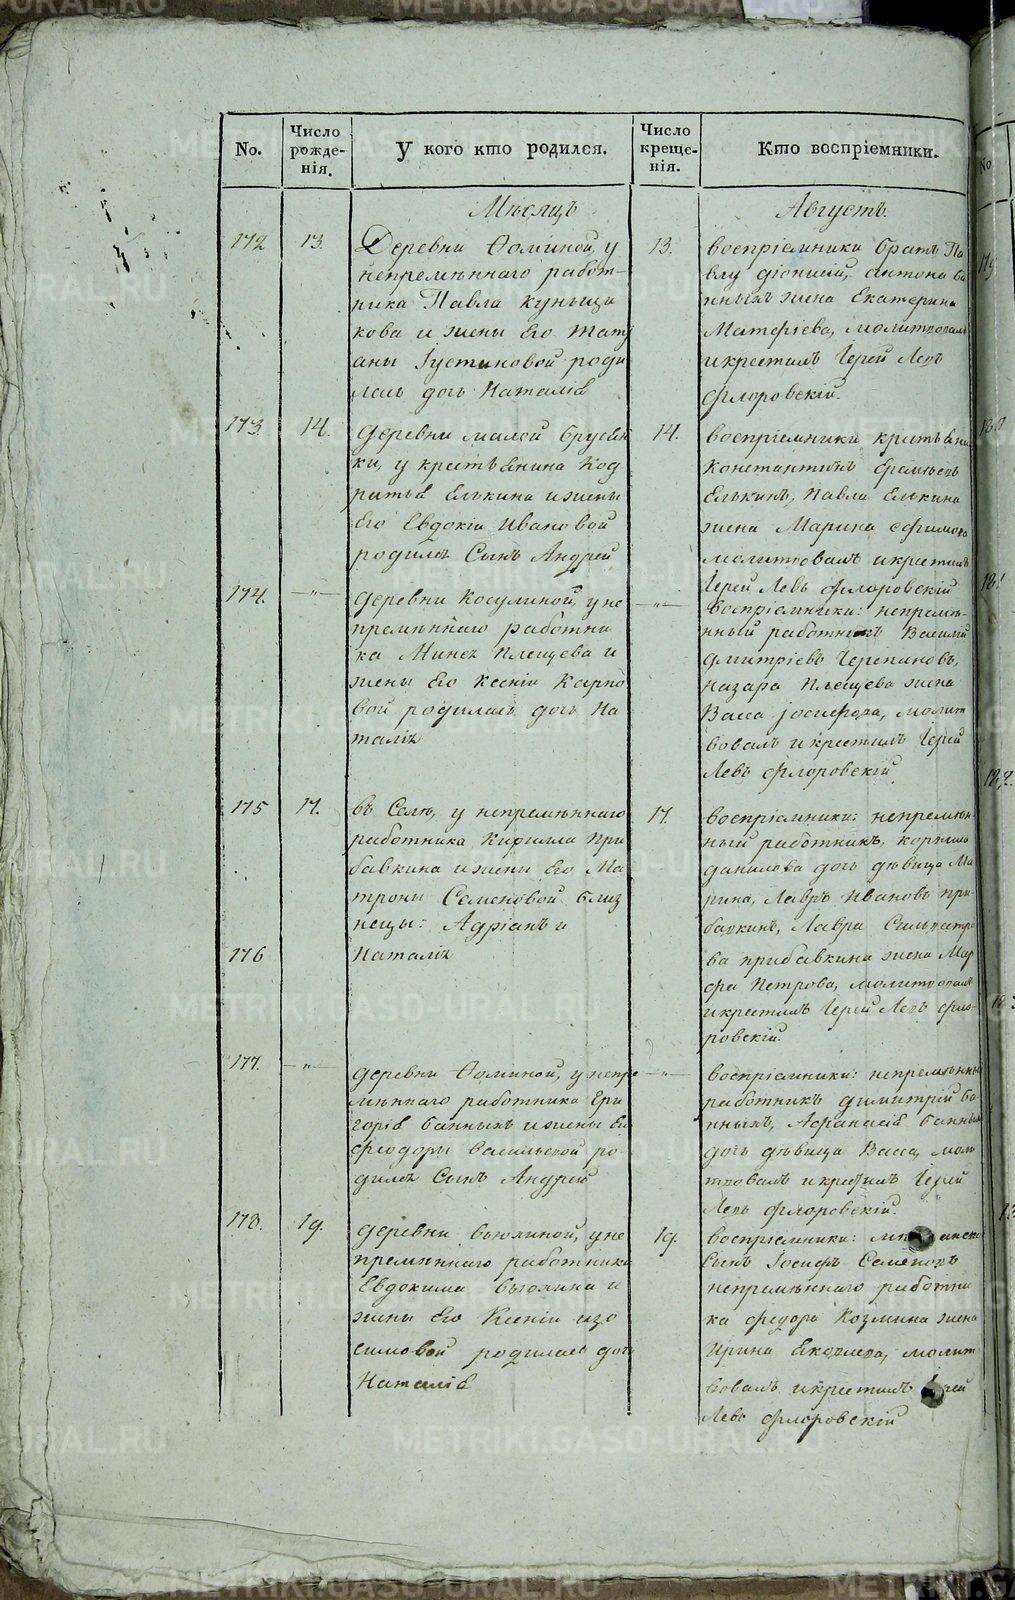 No.
Число
рожде-
нія.
У кого кто родился.
Число
креще-
нія.
Кто воспріемники.
Мѣсяцъ
Августъ.
172
13.
Деревни Ѳоминой, у
непремѣннаго работ-
ника Павла Куньщи
кова и жены Его Тать
аны Іустиновой роди
лась дочь Наталія
13.
воспріемники братъ Па
влу Діонисій, антона ба
нныхъ жена Екатерина
Матфіева, молитвовалъ
и крестилъ Іерей Левъ
Флоровскій.
173.
14.
деревни малой брусян
ки, у крестьянина Код
ратья Елькина и жены
Его Евдокіи Ивановой
родился Сынъ Андрей
14.
воспріемники крестьянин
Константинъ
Елькинъ, Павла Елькина
жена Марина Ефимова
молитвовалъ и крестилъ
Іерей Левъ Флоровскій
174.
—"—
деревни Косулиной, у не
премѣннаго работни
ка Плещева и
жены Его Ксеніи Карпо
вой родилась дочь На
талія
—"—
Воспріемники: непремѣ-
нный работникъ Василій
Дмитріевъ Черепановъ,
Назара Плещева жена
Васса Іосифова, молит
вовалъ и крестилъ Іерей
Левъ Флоровскій
175
17.
въ Селѣ, у непремѣннаго
работника Кирилла При
бавкина и жены Его Ма
троны Семеновой близ
нецы: Адріанъ и
17.
воспріемники: непремѣн-
ный работникъ,
данилова дочь дѣвица Ма
рина, Лавръ Ивановъ при-
бавкинъ, Лавра Сильвестро
176
Наталія
ва прибавкина жена Мар
фа Петрова, молитвовалъ
и крестилъ Іерей Левъ Фло-
ровскій.
177.
—"—
деревни Ѳоминой, у непре
мѣннаго работника Гри
горія банныхъ и жены Ев
феодоры Васильевой ро
дился Сынъ Андрей
—"—
воспріемники: непремѣнный
работникъ димитрій ба
нныхъ, Афанасія банных
дочь дѣвица Васса, моли
твовалъ и крестилъ Іерей
Левъ Флоровскій.
178.
19.
деревни вьюхиной, у не
премѣннаго работника
Евдокима вьюхина и
жены Его Ксеніи изо
симовой родилась дочь
Наталія
19.
воспріемники:
сынъ Іосифъ Семеновъ
непремѣннаго работни
ка Федора Козмина жена
Ирина Яковлева, молит
вовалъ и крестилъ
Левъ Флоровскій